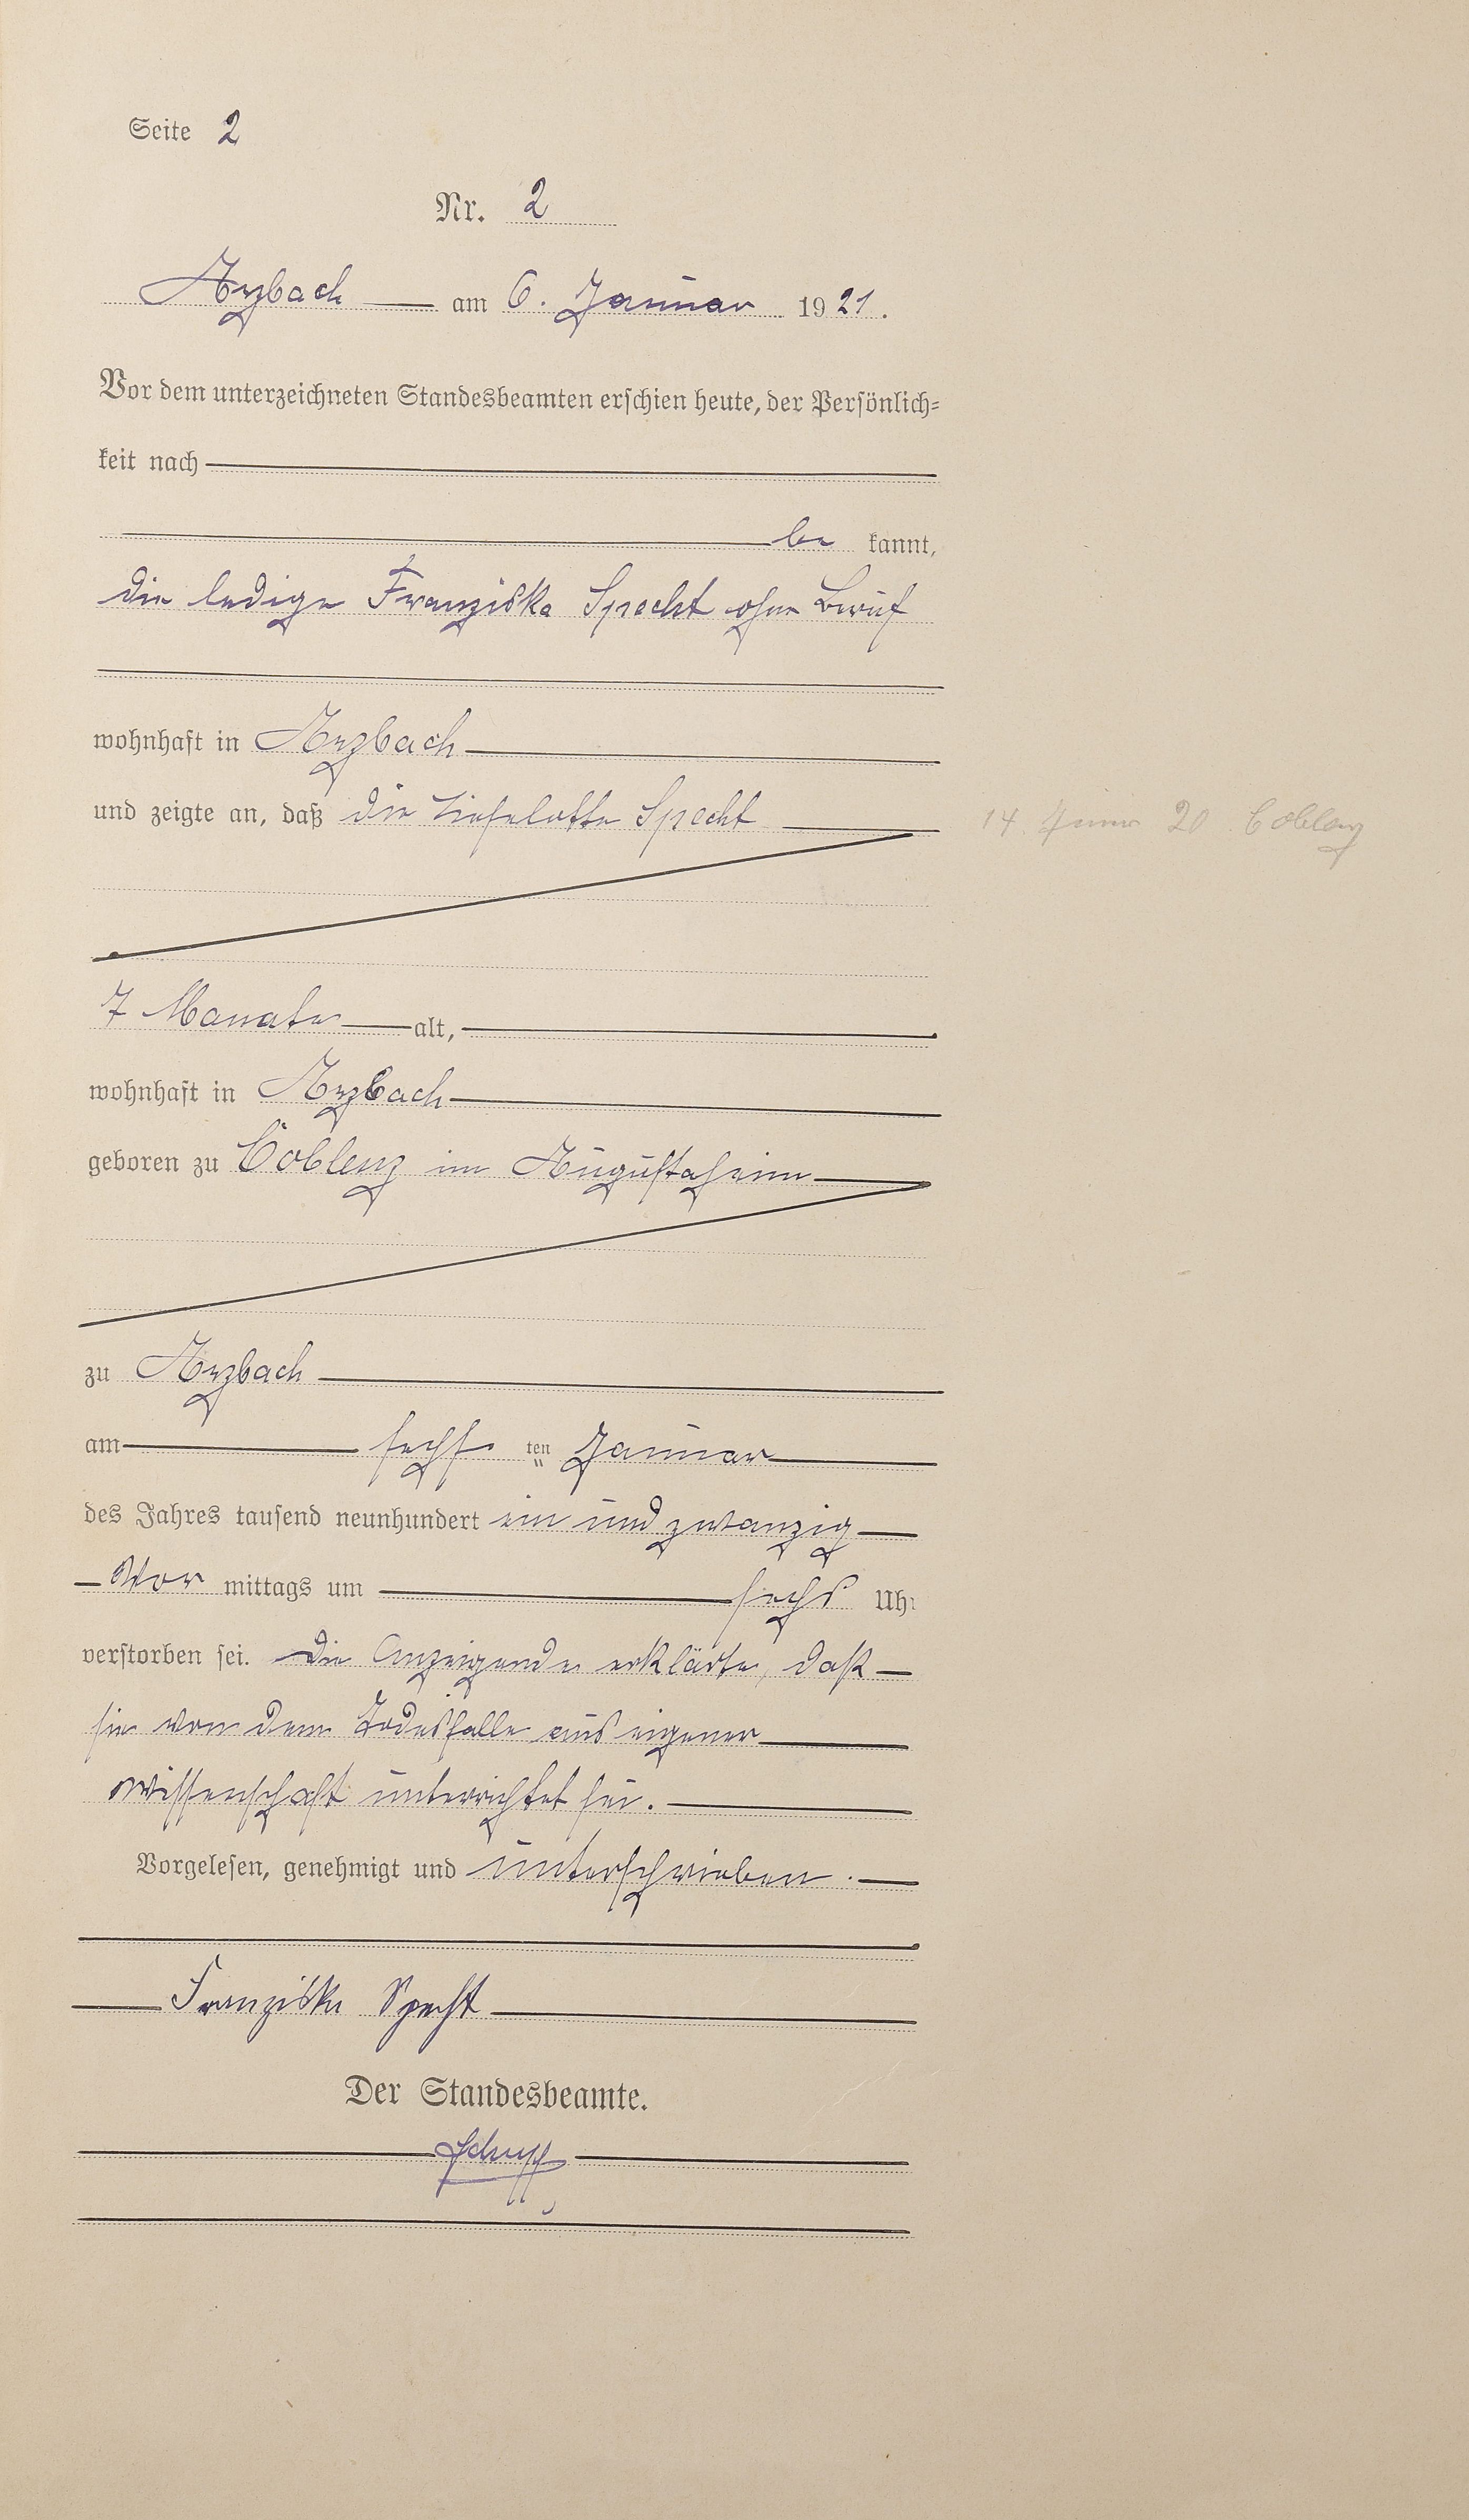 Seite 2
Nr. 2
Arzbach am 6. Januar 1921.
Vor dem unterzeichneten Standesbeamten erschien heute, der Persönlich-
keit nach
be kannt,
die ledige Franziska Specht ohne Beruf
wohnhaft in Arzbach
und zeigte an, daß die Lieselotte Specht
14. Juni 20 Coblenz
7 Monate alt,
wohnhaft in Arzbach
geboren zu Coblenz im Augustaheim
zu Arzbach
am sechs ten Januar
des Jahres tausend neunhundert ein und zwanzig
Vor mittags um sechs Uhr
verstorben sei. Die Anzeigende erklärte, daß
sie von dem Todesfalle aus eigener
Wissenschaft unterrichtet sei.
Vorgelesen, genehmigt und unterschrieben.
Franziska Specht
Der Standesbeamte.